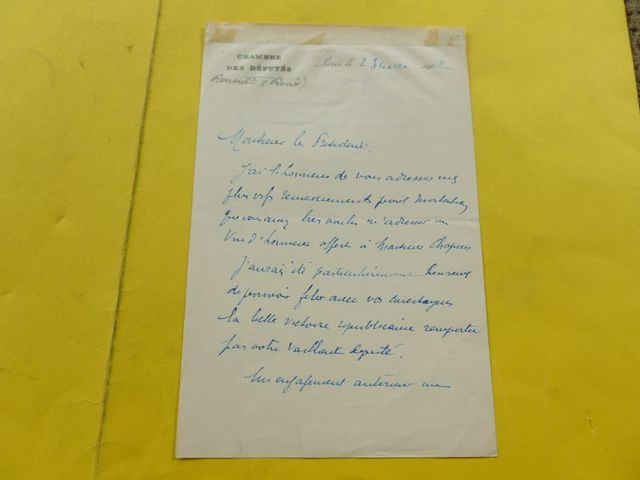 CHAMBRE
DES DÉPUTÉS
Paris le 2
Renoult (René)
Monsieur le Président,
J'ai l'honneur de vous adresser mes
plus vifs remerciements pour l'invitation
que vous avez bien voulu m'adresser au
Vin d'honneur offert à Monsieur Chapuis
J'aurais été particulièrement heureux
de pouvoir fêter avec vos
la belle victoire républicaine remportée
par votre vaillant député.
Un engagement antérieur me